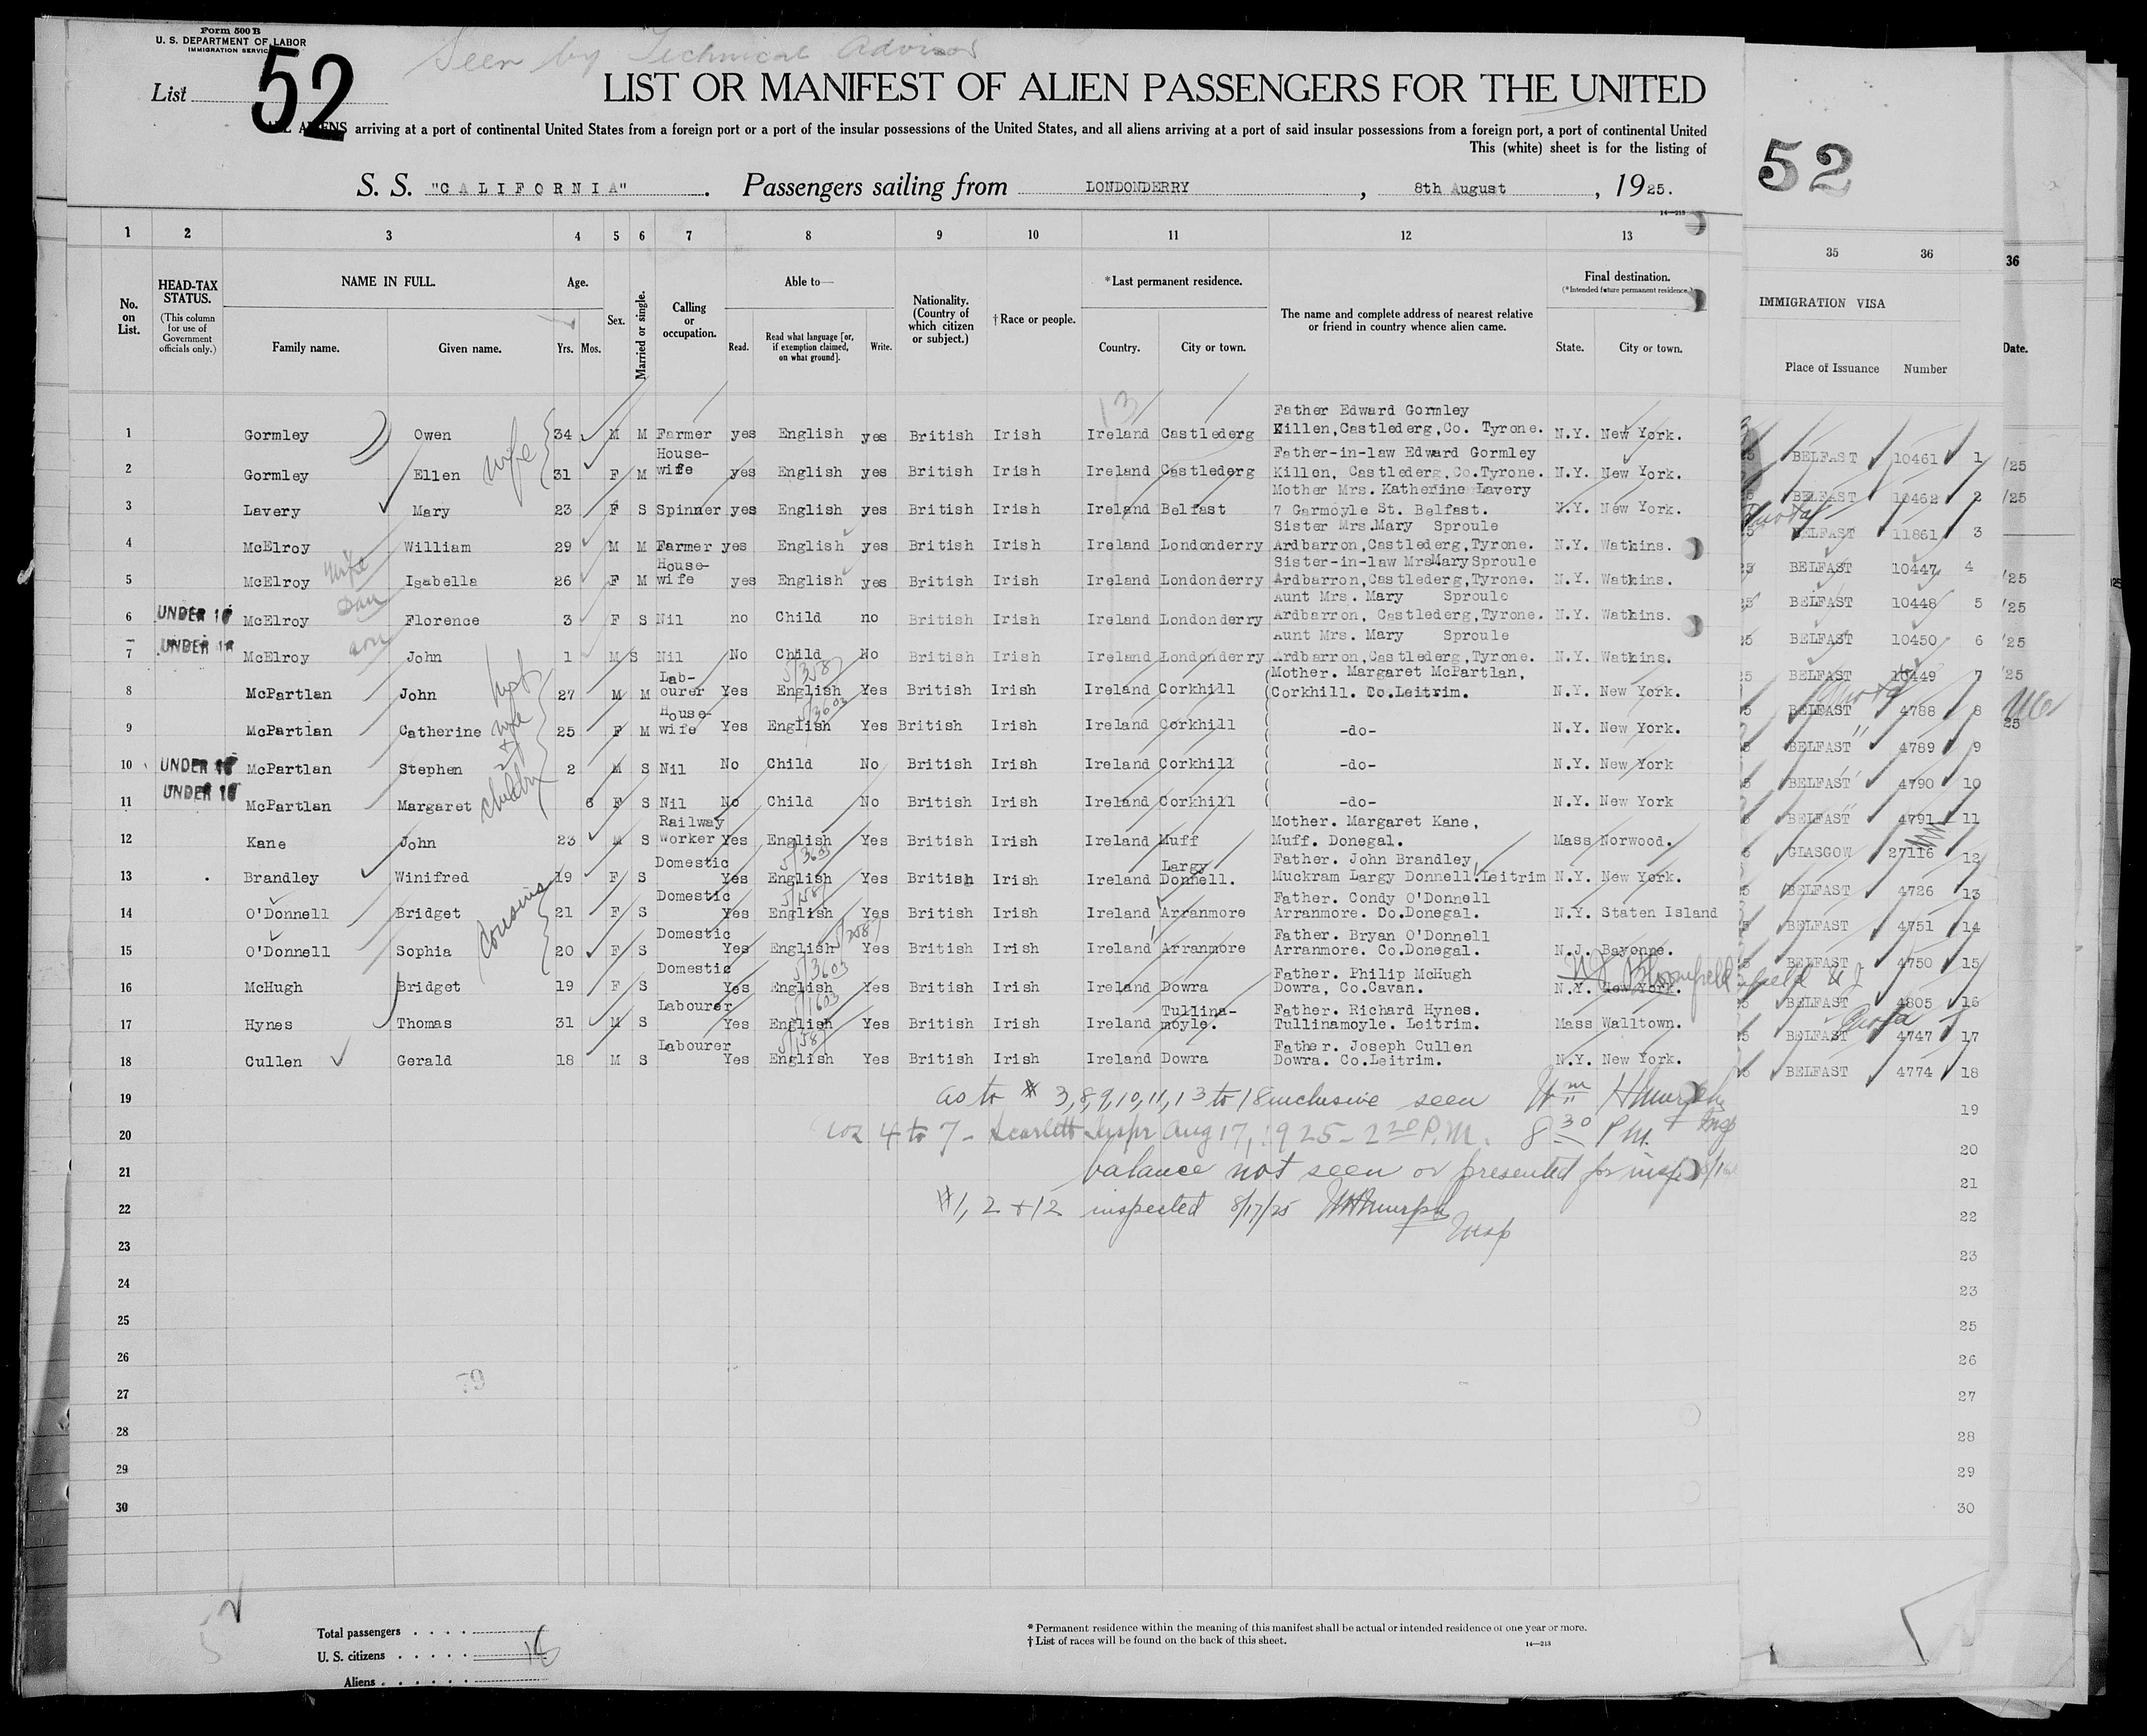 Form 500 B
U. S. DEPARTMENT OF LABOR
IMMIGRATION SERVICE
Seen by Technical Advisor
List 52
LIST OR MANIFEST OF ALIEN PASSENGERS FOR THE UNITED
ALL ALIENS arriving at a port of continental United States from a foreign port or a port of the insular possessions of the United States, and all aliens arriving at a port of said insular possessions from a foreign port, a port of continental United
This (white) sheet is for the listing of
52
S. S. "CALIFORNIA". Passengers sailing from LONDONDERRY, 8th August, 1925.
14—213
1 2 3 4 5 6 7 8 9 10 11 12 13 35 36 36
No. on List.
HEAD-TAX STATUS.
(This column for use of Government officials only.)
NAME IN FULL.
Family name. Given name.
Age.
Yrs. Mos.
Sex.
Married or single.
Calling or occupation.
Able to—
Read. Read what language [or, if exemption claimed, on what ground]. Write.
Nationality. (Country of which citizen or subject.)
† Race or people.
* Last permanent residence.
Country. City or town.
The name and complete address of nearest relative or friend in country whence alien came.
Final destination.
(*Intended future permanent residence.)
State. City or town.
IMMIGRATION VISA
Place of Issuance Number
Date.
13
Father Edward Gormley
1 Gormley Owen 34 M M Farmer yes English yes British Irish Ireland Castlederg Killen,Castlederg,Co. Tyrone. N.Y. New York. BELFAST 10461 1
wife
House- Father-in-law Edward Gormley
2 Gormley Ellen 31 F M wife yes English yes British Irish Ireland Castlederg Killen, Castlederg,Co.Tyrone. N.Y. New York. BELFAST 10462 2
Mother Mrs. Katherine Lavery
3 Lavery Mary 23 F S Spinner yes English yes British Irish Ireland Belfast 7 Garmoyle St. Belfast. N.Y. New York. BELFAST 11861 3
Sister Mrs.Mary Sproule
4 McElroy William 29 M M Farmer yes English yes British Irish Ireland Londonderry Ardbarron,Castlederg,Tyrone. N.Y. Watkins. BELFAST 10447 4
wife
House- Sister-in-law MrsMarySproule
5 McElroy Isabella 26 F M wife yes English yes British Irish Ireland Londonderry Ardbarron,Castlederg,Tyrone. N.Y. Watkins. BELFAST 10448 5
Dau
Aunt Mrs. Mary Sproule
6 UNDER 16 McElroy Florence 3 F S Nil no Child no British Irish Ireland Londonderry Ardbarron, Castlederg,Tyrone. N.Y. Watkins. BELFAST 10450 6
son
Aunt Mrs. Mary Sproule
7 UNDER 16 McElroy John 1 M S Nil No Child No British Irish Ireland Londonderry Ardbarron,Castlederg,Tyrone. N.Y. Watkins. BELFAST 10449 7
Lab- Mother. Margaret McPartlan,
8 McPartlan John 27 M M ourer Yes English Yes British Irish Ireland Corkhill Corkhill. Co.Leitrim. N.Y. New York. BELFAST 4788 8
wife & childn
House-
9 McPartlan Catherine 25 F M wife Yes English Yes British Irish Ireland Corkhill -do- N.Y. New York. BELFAST 4789 9
10 UNDER 16 McPartlan Stephen 2 M S Nil No Child No British Irish Ireland Corkhill -do- N.Y. New York BELFAST 4790 10
11 UNDER 16 McPartlan Margaret 6 F S Nil No Child No British Irish Ireland Corkhill -do- N.Y. New York BELFAST 4791 11
Railway Mother. Margaret Kane,
12 Kane John 23 M S Worker Yes English Yes British Irish Ireland Muff Muff. Donegal. Mass Norwood. GLASGOW 27116 12
Domestic Largy Father. John Brandley,
13 Brandley Winifred 19 F S Yes English Yes British Irish Ireland Donnell. Muckram Largy Donnell.Leitrim N.Y. New York. BELFAST 4726 13
Cousins
Domestic Father. Condy O'Donnell
14 O'Donnell Bridget 21 F S Yes English Yes British Irish Ireland Arranmore Arranmore. Co.Donegal. N.Y. Staten Island BELFAST 4751 14
Domestic Father. Bryan O'Donnell
15 O'Donnell Sophia 20 F S Yes English Yes British Irish Ireland Arranmore Arranmore. Co.Donegal. N.J. Bayonne. BELFAST 4750 15
NJ Bloomfield
Domestic Father. Philip McHugh
16 McHugh Bridget 19 F S Yes English Yes British Irish Ireland Dowra Dowra, Co.Cavan. N.Y. New York. BELFAST 4805 16
Labourer Tullina- Father. Richard Hynes.
17 Hynes Thomas 31 M S Yes English Yes British Irish Ireland moyle. Tullinamoyle. Leitrim. Mass Walltown. BELFAST 4747 17
Labourer Father. Joseph Cullen
18 Cullen Gerald 18 M S Yes English Yes British Irish Ireland Dowra Dowra. Co.Leitrim. N.Y. New York. BELFAST 4774 18
19 as to # 3,8,9,10,11,13 to 18 inclusive seen Wm H Murphy 19
20 Nos 4 to 7 - Scarlett Inspr Aug 17, 1925 - 2 20 P.M. 8 30 P.M. Insp 20
21 balance not seen or presented for insp 21
22 #1, 2 + 12 inspected 8/17/25 WHMurphy Insp 22
23 23
24 23
25 25
26 26
27 79 27
28 28
29 29
30 30
Total passengers
U. S. citizens
Aliens
* Permanent residence within the meaning of this manifest shall be actual or intended residence of one year or more.
† List of races will be found on the back of this sheet. 14—213